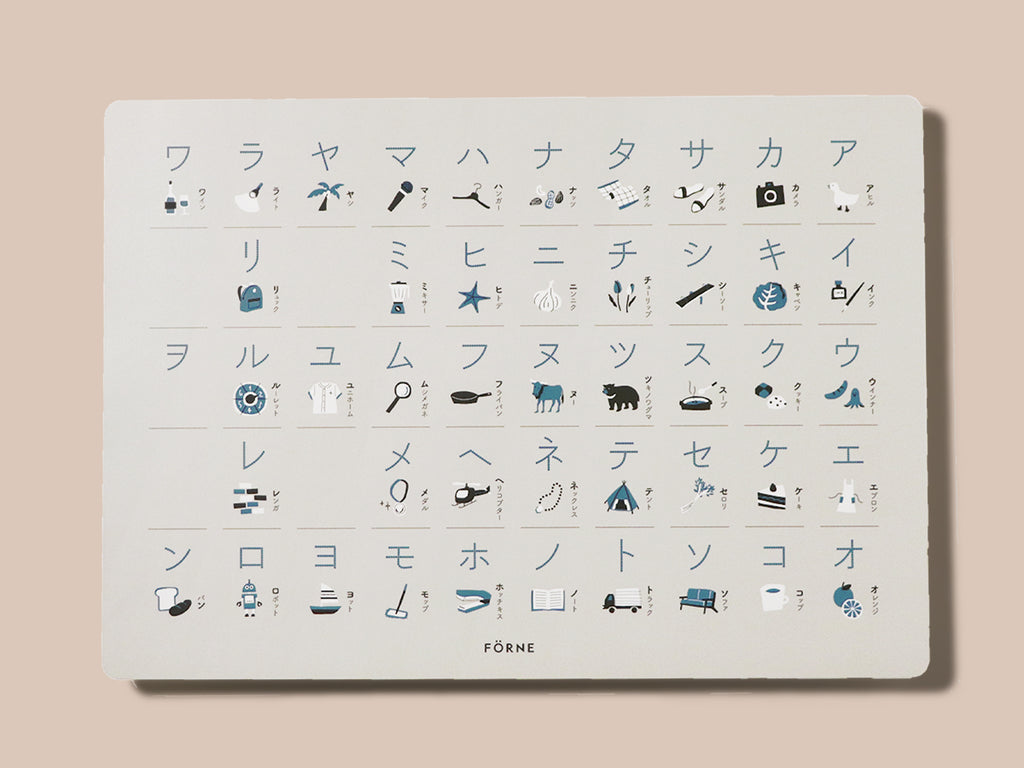 ア
アヒル
イ
インク
ウ
ウインナー
エ
エプロン
オ
オレンジ
カ
カメラ
キ
キャベツ
ク
クッキー
ケ
ケーキ
コ
コップ
サ
サンダル
シ
シーソー
ス
スープ
セ
セロリ
ソ
ソファ
タ
タオル
チ
チューリップ
ツ
ツキノワグマ
テ
テント
ト
トラック
ナ
ナッツ
ニ
ニンニク
ヌ
ヌー
ネ
ネックレス
ノ
ノート
ハ
ハンガー
ヒ
ヒトデ
フ
フライパン
ヘ
ヘリコプター
ホ
ホッチキス
マ
マイク
ミ
ミキサー
ム
ムシメガネ
メ
メダル
モ
モップ
ヤ
ヤシ
ユ
ユニホーム
ヨ
ヨット
ラ
ライト
リ
リュック
ル
ルーレット
レ
レンガ
ロ
ロボット
ワ
ワイン
ヲ
ン
パン
FÖRNE